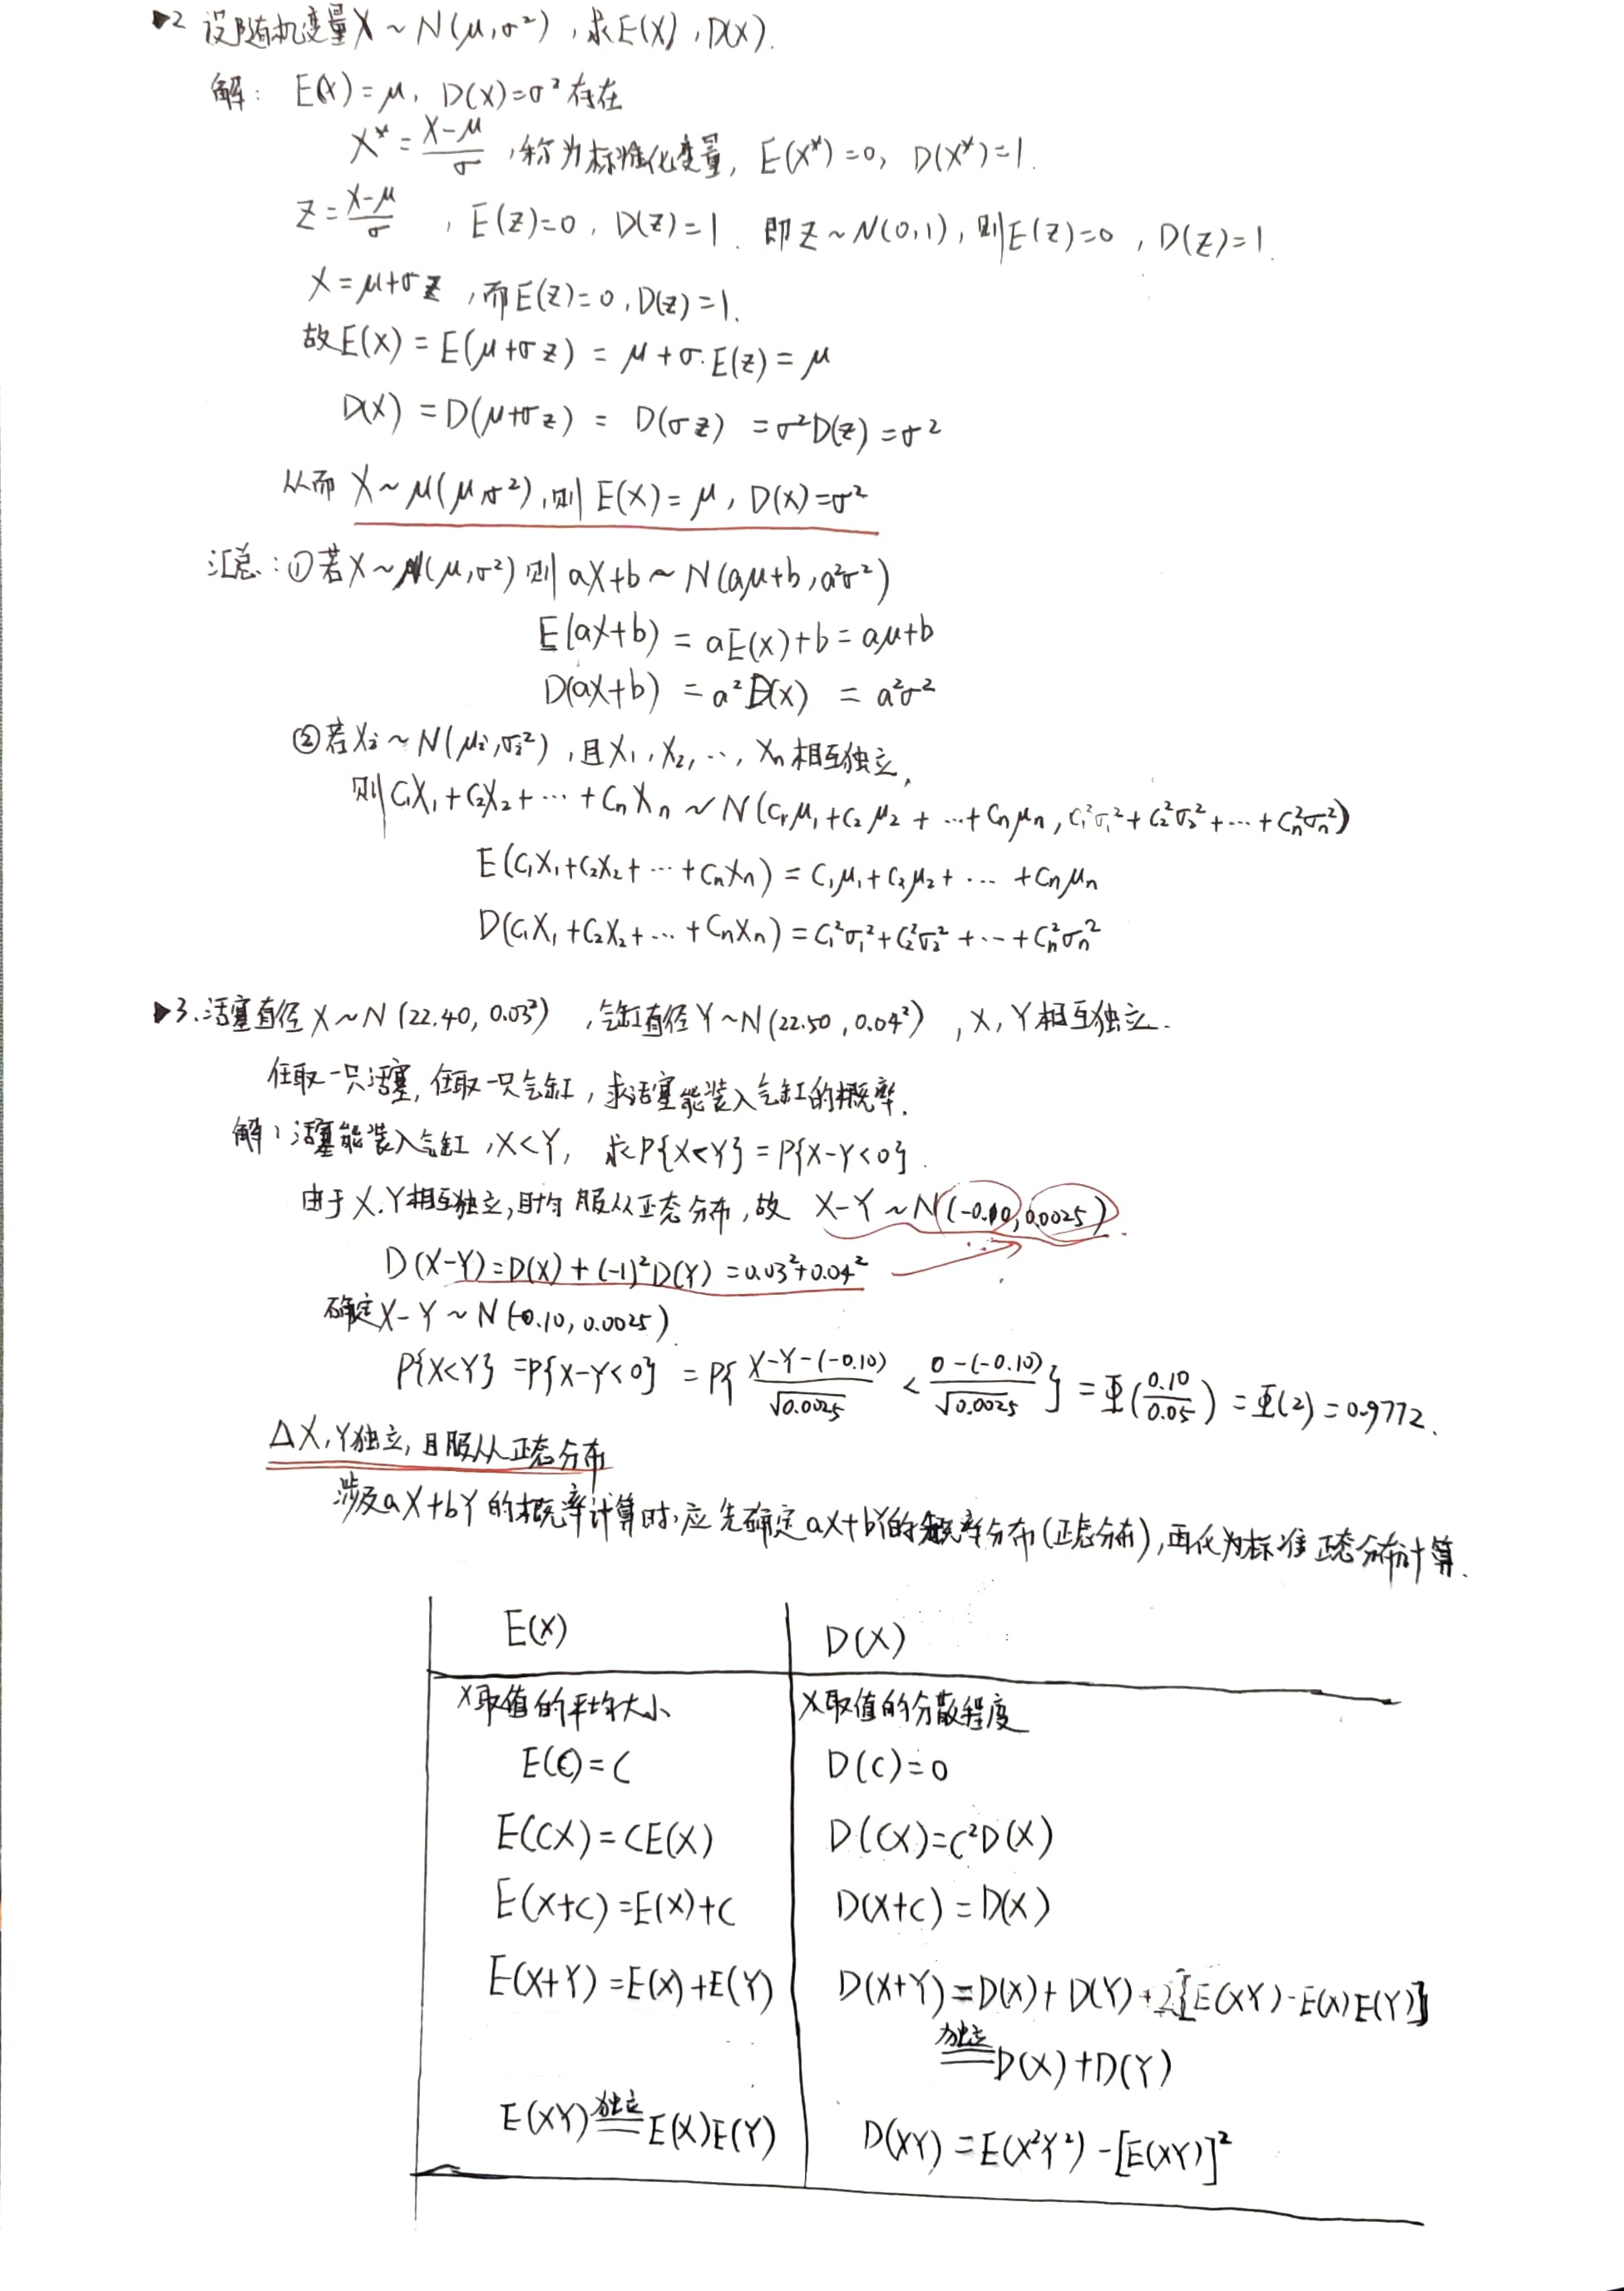 ▶2 设随机变量X~N(μ,σ²),求E(X),D(X).
解: E(X)=μ, D(X)=σ²存在
X*=(X-μ)/σ,称为标准化变量, E(X*)=0, D(X*)=1.
Z=(X-μ)/σ, E(Z)=0, D(Z)=1. 即Z~N(0,1),则E(Z)=0, D(Z)=1.
X=μ+σZ,而E(Z)=0,D(Z)=1.
故E(X)=E(μ+σZ)=μ+σ·E(Z)=μ
D(X)=D(μ+σZ)=D(σZ)=σ²D(Z)=σ²
从而 X~μ(μ,σ²),则E(X)=μ, D(X)=σ²
汇总:①若X~N(μ,σ²)则aX+b~N(aμ+b,a²σ²)
E(aX+b)=aE(X)+b=aμ+b
D(aX+b)=a²D(X)=a²σ²
②若Xi~N(μi,σi²),且X₁,X₂,…,Xn相互独立,
则C₁X₁+C₂X₂+…+CnXn~N(C₁μ₁+C₂μ₂+…+Cnμn,C₁²σ₁²+C₂²σ₂²+…+Cn²σn²)
E(C₁X₁+C₂X₂+…+CnXn)=C₁μ₁+C₂μ₂+…+Cnμn
D(C₁X₁+C₂X₂+…+CnXn)=C₁²σ₁²+C₂²σ₂²+…+Cn²σn²
▶3.活塞直径X~N(22.40,0.03²),气缸直径Y~N(22.50,0.04²),X,Y相互独立.
任取一只活塞,任取一只气缸,求活塞能装入气缸的概率.
解:活塞能装入气缸,X<Y, 求P{X<Y}=P{X-Y<0}.
由于X,Y相互独立,且均服从正态分布,故 X-Y~N(-0.10,0.0025).
D(X-Y)=D(X)+(-1)²D(Y)=0.03²+0.04²
确定X-Y~N(-0.10,0.0025)
P{X<Y}=P{X-Y<0}=P{(X-Y-(-0.10))/√0.0025<(0-(-0.10))/√0.0025}=Φ(0.10/0.05)=Φ(2)=0.9772.
△X,Y独立,且服从正态分布
涉及aX+bY的概率计算时,应先确定aX+bY的概率分布(正态分布),再化为标准正态分布计算.
E(X) D(X)
X取值的平均大小 X取值的分散程度
E(C)=C D(C)=0
E(CX)=CE(X) D(CX)=C²D(X)
E(X+C)=E(X)+C D(X+C)=D(X)
E(X+Y)=E(X)+E(Y) D(X+Y)=D(X)+D(Y)+2[E(XY)-E(X)E(Y)]
独立=D(X)+D(Y)
E(XY)独立=E(X)E(Y) D(XY)=E(X²Y²)-[E(XY)]²